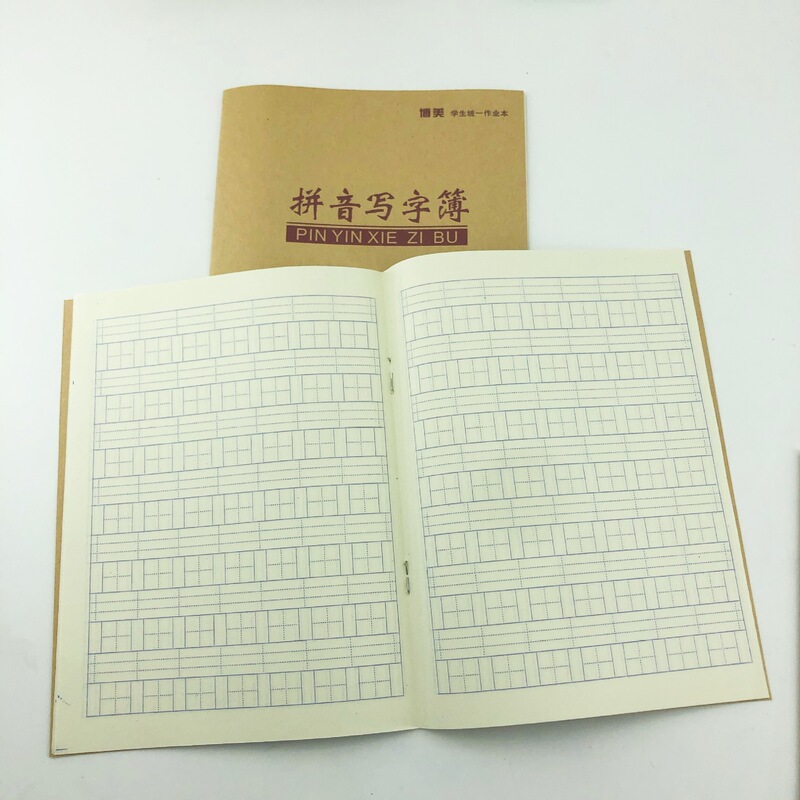 博美 学生统一作业本
拼音写字簿
PIN YIN XIE ZI BU